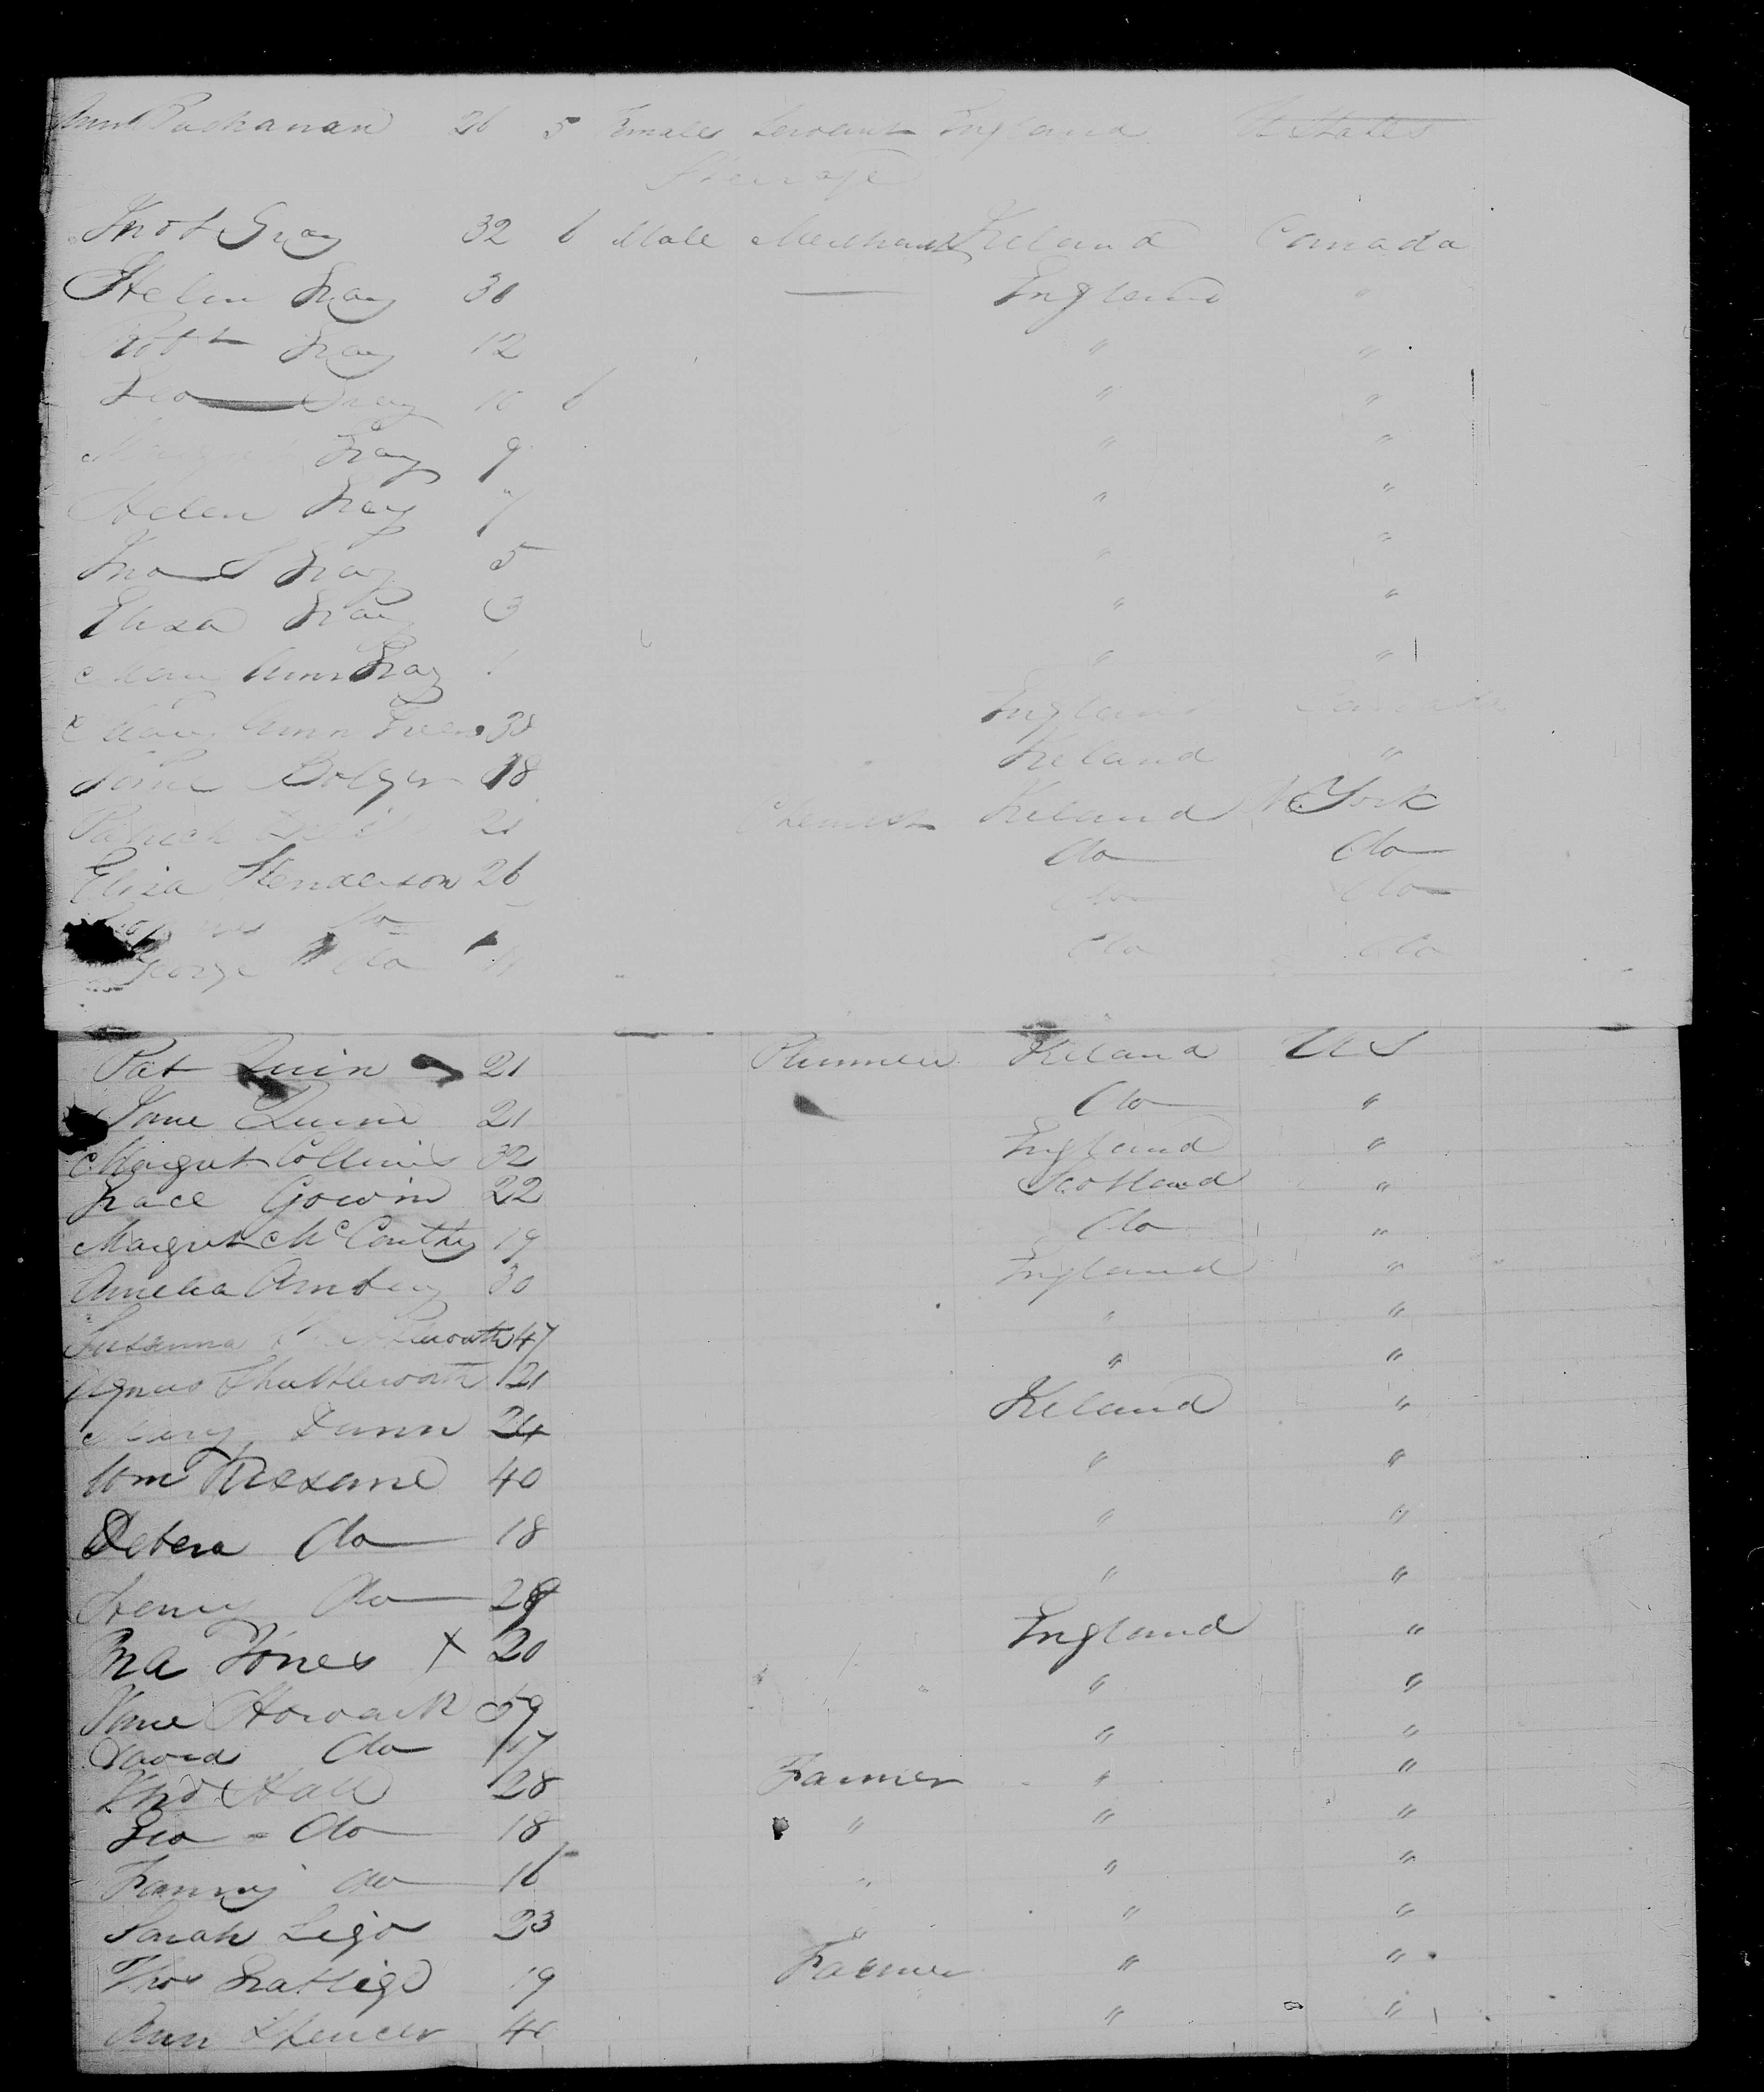 Ann Buchanan 26 5 Female Servant England U States
Steerage
Jno S Gray 32 6 Male Merchant Ireland Canada
Helen Gray 30 — England "
Robt Gray 12 " "
Geo Gray 10 6 " "
Margret Gray 9 " "
Helen Gray 7 " "
Jno S Gray 5 " "
Eliza Gray 3 " "
Mary Ann Gray 1 " "
Mary Ann 38 England Canada
Jane Bolger 18 Ireland "
Patrick 21 Chemist Ireland N York
Eliza Henderson 26 do do
do do do
George do 11 do do
Pat Quin 21 Plummer Ireland US
Jane Quinn 21 do "
Margret Collins 32 England "
Grace Gowin 22 Scotland "
Margret McConthy 19 do "
Amelia 30 England "
Susanna 47 " "
Agnes Shuttleworth 21 " "
Mary Dunn 24 Ireland "
Wm 40 " "
Debera do 18 " "
Henry do 29 " "
Jones X 20 England "
Jane Howarth 59 " "
David do 17 " "
Jno Hall 28 Farmer " "
Geo - do 18 " " "
Fanny do 16 " " "
Sarah Ligo 23 " " "
Thos 19 Farmer " "
Ann Spencer 40 " "